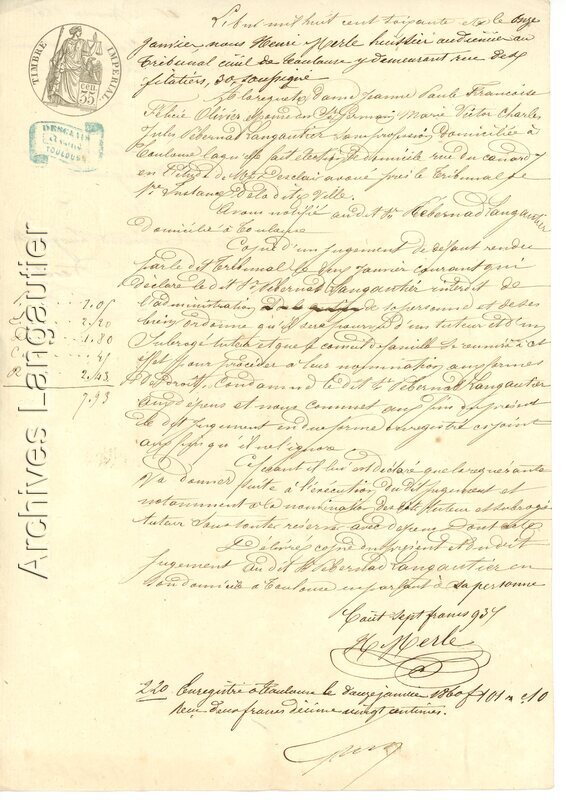 TIMBRE IMPERIAL
35 cen
DESCLAIS
AVOUÉ
TOULOUSE
L'an mil huit cent soixante et le onze
janvier nous Henri Merle huissier audiencier au
Tribunal civil de Toulouse y demeurant rue des
filatiers, 30, soussigné
A la requête de dame Jeanne Paule Françoise
Félicie Olivier épouse en Sr Germain Marie Victor Charles
Jules Hébernad Langautier sans profession, domiciliée à
Toulouse laquelle fait élection de domicile rue du canard
en l'étude de Me Desclais avoué près le Tribunal de
1re Instance de la dite Ville.
Avons notifié au dit Sr Hébernad Langautier
domicilié à Toulouse
Copie d'un jugement de défaut rendu
par le dit Tribunal le janvier courant qui
déclare le dit Sr Hébernad Langautier interdit de
l'administration de sa personne et de ses
biens ordonne qu'il sera pourvu d'un tuteur et d'un
subrogé tuteur et que le conseil de famille se réunira à cet
effet pour procéder à leur nomination aux formes
de droit, condamne le dit Sr Hébernad Langautier
aux dépens et nous commet aux fins du présent
le dit jugement en due forme enregistré ce joint
aux fins qu'il ne l'ignore
Ce faisant il lui est déclaré que la requérante
va donner suite à l'exécution du dit jugement et
notamment à la nomination des tuteur et subrogé
tuteur sous toutes réserves avec dépens Dont acte
Délivré copie du présent et du dit
jugement au dit Sr Hébernad Langautier en
son domicile à Toulouse en parlant à sa personne
Coût sept francs 93c
H. Merle
220 Enregistré à Toulouse le douze janvier 1860 fo 101 c 10
Reçu deux francs décime vingt centimes.
1.05
2.20
2.45
7.93
Archives Langautier